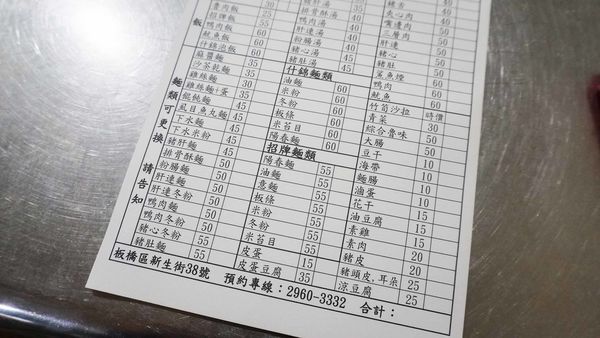 飯
魯肉飯 30
招牌飯 55
鴨肉飯 60
魷魚飯 60
什錦泡飯 60
麵類可更換 請告知
麻醬麵 35
沙茶花麵 35
雞絲麵 30
雞絲麵+蛋 35
餛飩麵 45
虱目魚丸麵 45
下水麵 45
下水米粉 45
豬肝麵 45
排骨酥麵 45
粉腸麵 50
肝連麵 50
肝連冬粉 50
鴨肉麵 50
鴨肉冬粉 50
豬心冬粉 55
豬肚麵 55
排骨酥湯
鴨肉湯 40
肝連湯 40
粉腸湯 40
豬心湯 45
豬肚湯 45
什錦麵類
油麵 60
米粉 60
冬粉 60
板條 60
米苔目 60
陽春麵 60
招牌麵類
陽春麵 55
油麵 55
意麵 55
板條 55
米粉 55
冬粉 55
米苔目 55
皮蛋 15
皮蛋豆腐 35
豬舌
嘴邊肉 40
三層肉 40
肝連 50
豬心 50
豬肚 50
鯊魚煙 60
鴨肉 60
魷魚 60
竹筍沙拉 時價
青菜 30
綜合魯味 50
大腸 50
豆干 10
海帶 10
麵腸 10
滷蛋 10
花干 10
油豆腐 15
素雞 15
素肉 15
豬皮 20
豬頭皮,耳朵 25
涼豆腐 25
板橋區新生街38號 預約專線：2960-3332 合計：